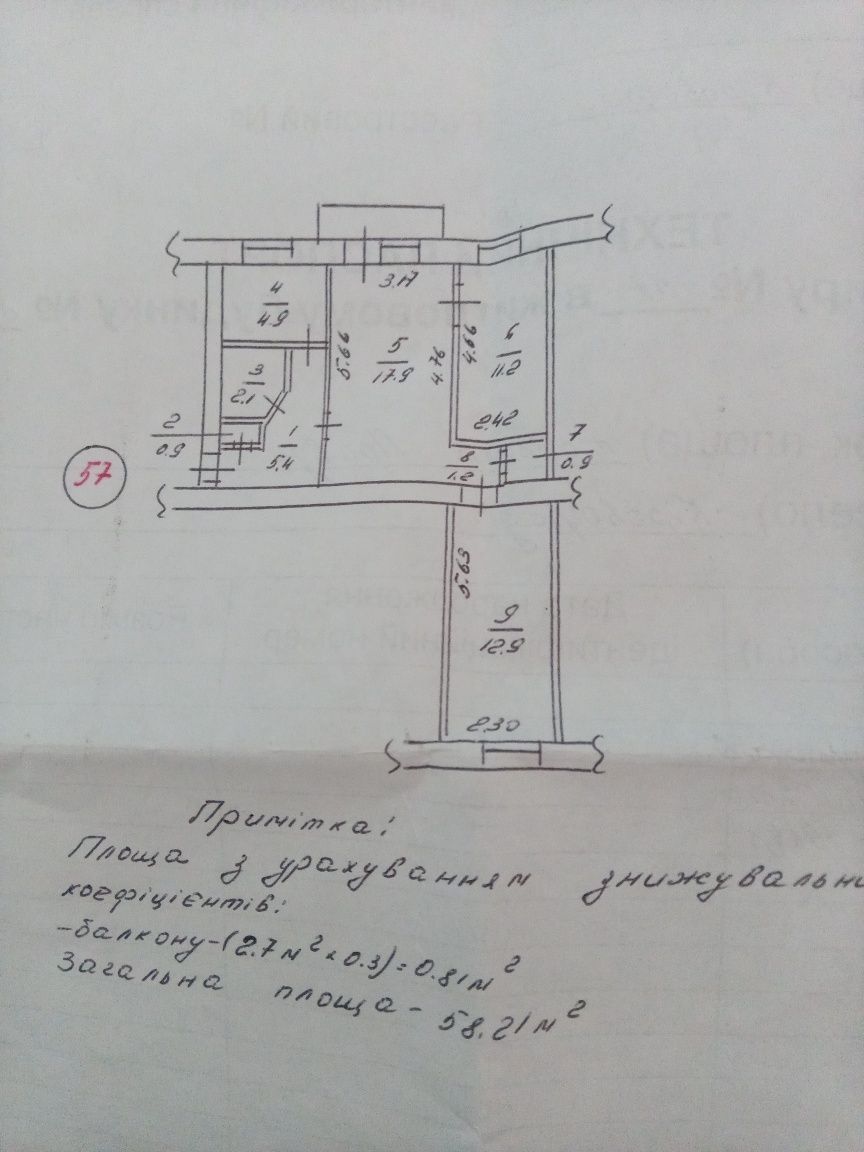 3.17
4
4.9
5.66
5
17.9
4.76
4.66
6
11.2
3
2.1
2.42
2
0.9
1
5.4
7
0.9
8
1.2
57
5.63
9
12.9
2.30
Примітка:
Площа з урахуванням знижувальн
коефіцієнтів:
-балкону-(2.7м²×0.3)=0.81м²
Загальна площа - 58.21м²